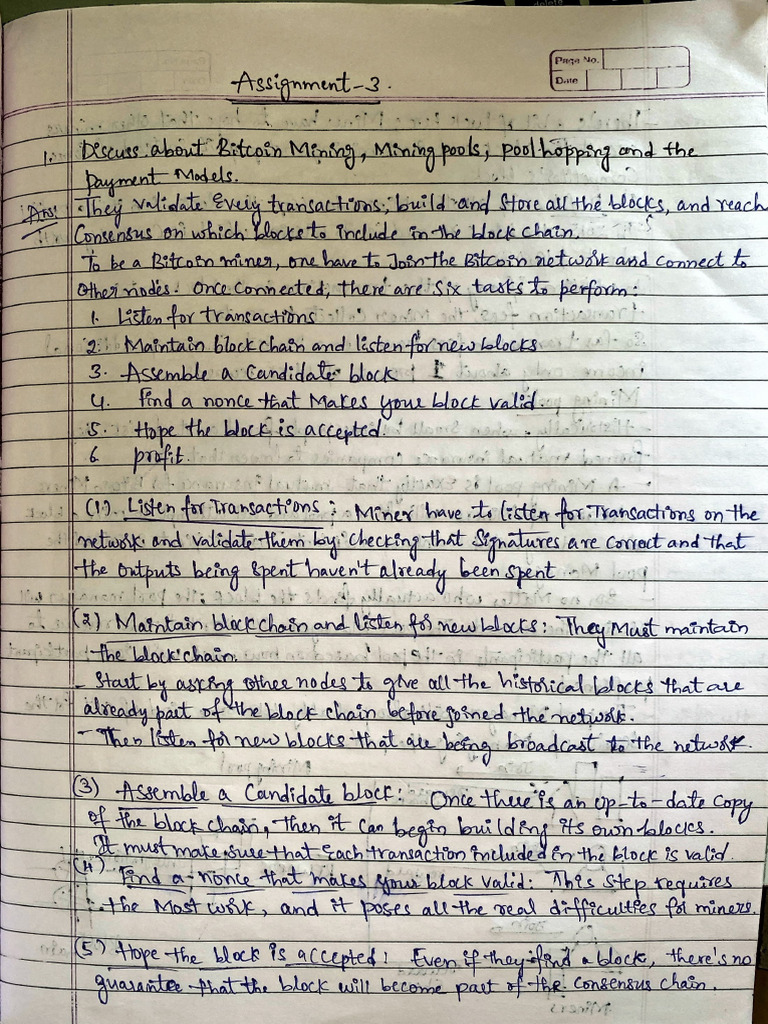 Assignment-3.
Page No.
Date
1. Discuss about Bitcoin Mining, Mining pools, pool hopping and the
payment Models.
Ans: They validate Every transactions, build and store all the blocks, and reach
Consensus on which blocks to include in the block chain.
To be a Bitcoin miner, one have to Join the Bitcoin network and connect to
other nodes. Once connected, there are six tasks to perform:
1. Listen for transactions
2. Maintain block chain and listen for new blocks
3. Assemble a Candidate block
4. Find a nonce that Makes your block valid.
5. Hope the block is accepted.
6 profit.
(1) Listen for Transactions: Miner have to listen for Transactions on the
network and validate them by checking that Signatures are correct and that
the outputs being spent haven't already been spent
(2) Maintain block chain and listen for new blocks: They Must maintain
the block chain.
- Start by asking other nodes to give all the historical blocks that are
already part of the block chain before joined the network.
- Then listen for new blocks that are being broadcast to the network.
(3) Assemble a Candidate block: Once there is an up-to-date copy
of the block chain, then it can begin building its own blocks.
It must make sure that Each transaction included in the block is valid.
(4) Find a nonce that makes your block valid: This step requires
the Most work, and it poses all the real difficulties for miners.
(5) Hope the block is accepted: Even if they find a block, there's no
guarantee that the block will become part of the consensus chain.